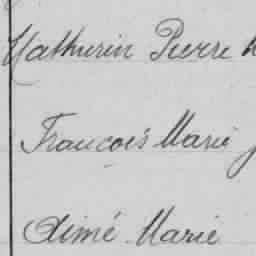 Mathurin Pierre
François Marie
Aimé Marie